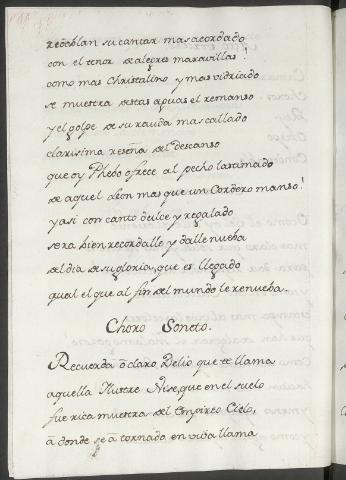 redoblan su cantar mas acordado
con el tenor de alegres maravillas!
como mas Christalino y mas vidriado
se muestra destas aguas el remanso
y el golpe de su rauda mas callado
clarissima reseña del descanso
que oy Phebo ofrece al pecho lastimado
de aquel aleon mas que un Cordero manso!
y asi con canto dulce y regalado
sera bien recordalle y dalle nueba
del dia de su gloria, que es llegado
qual el que al fin del mundo le renueba.
Choro Soneto.
Recuerda ô claro Delio que te llama
aquella Ilustre Nise, que en el suelo
fue rica muestra del Empireo Cielo,
â donde se â tornado en viva llama